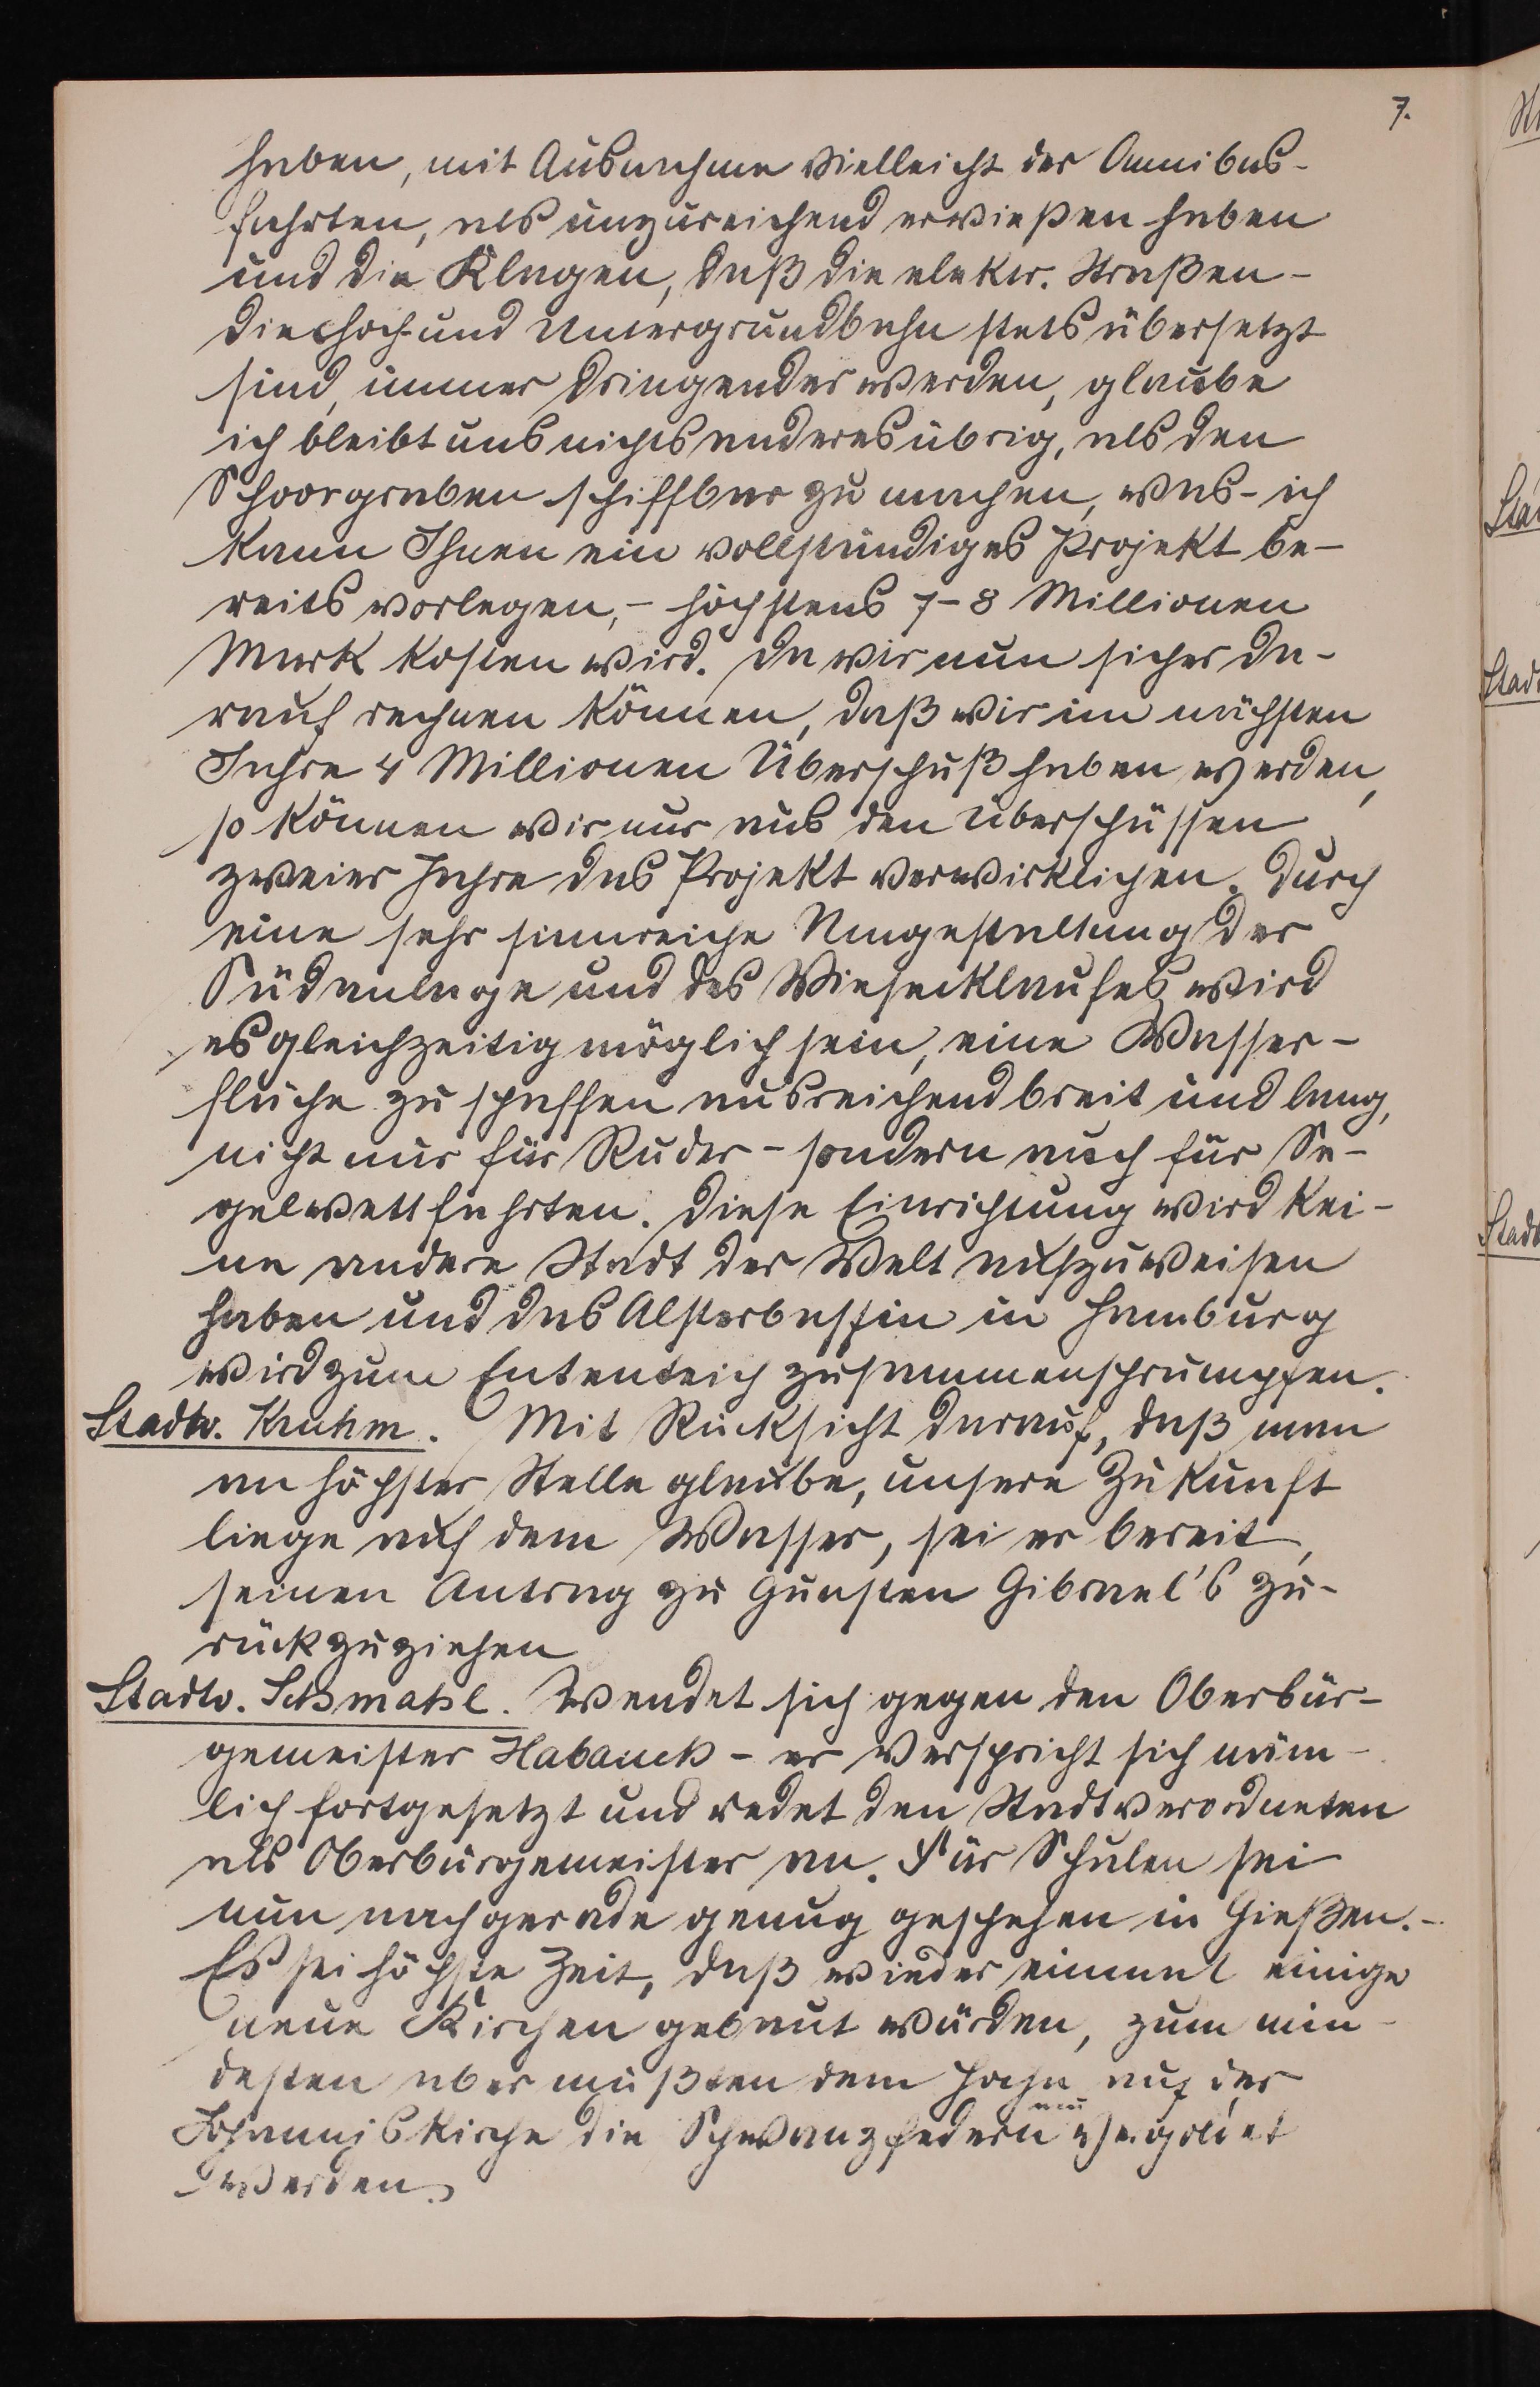 7.
haben, mit Ausnahme vielleicht der Omnibus-
fahrten, als unzureichend erwießen haben
und die Klagen, daß die elektr. Straßen-
die Hoch- und Untergrundbahn stets übersetzt
sind, immer dringender werden, glaube
ich bleibt uns nichts anderes übrig, als den
Schoorgraben schiffbar zu machen, was - ich
kann Ihnen ein vollständiges Projekt be-
reits vorlegen, - höchstens 7-8 Millionen
Mark kosten wird. Da wir nun sicher da-
rauf rechnen können, daß wir im nächsten
Jahre 4 Millionen Überschuß haben werden,
so können wir nur aus den Überschüssen
zweier Jahre das Projekt verwirklichen. Durch
eine sehr sinnreiche Umgestaltung der
Südanlage und des Wiesecklaufes wird
es gleichzeitig möglich sein, eine Wasser-
fläche zu schaffen ausreichend breit und lang,
nicht nur für Ruder- sondern auch für Se-
gelwettfahrten. Diese Einrichtung wird kei-
ne andere Stadt der Welt aufzuweisen
haben und das Alsterbassin in Hamburg
wird zum Ententeich zusammenschrumpfen.
Stadtv. Kruhm. Mit Rücksicht darauf, daß man
an höchster Stelle glaube, unsere Zukunft
liege auf dem Wasser, sei er bereit,
seinen Antrag zu Gunsten Gibrael's zu-
rückzuziehen
Stadtv. Schmahl. Wendet sich gegen den Oberbür-
gemeister Habauch - er verspricht sich näm-
lich fortgesetzt und redet den Stadtverordneten
als Oberbürgemeister an. Für Schulen sei
nun nachgerade genug geschehen in Gießen.-
Es sei höchste Zeit, daß wieder einmal einige
neue Kirchen gebaut würden, zum min-
desten aber müßten dem Hahn auf der
Johanniskirche die Schwanzfedern neu vergoldet
werden.